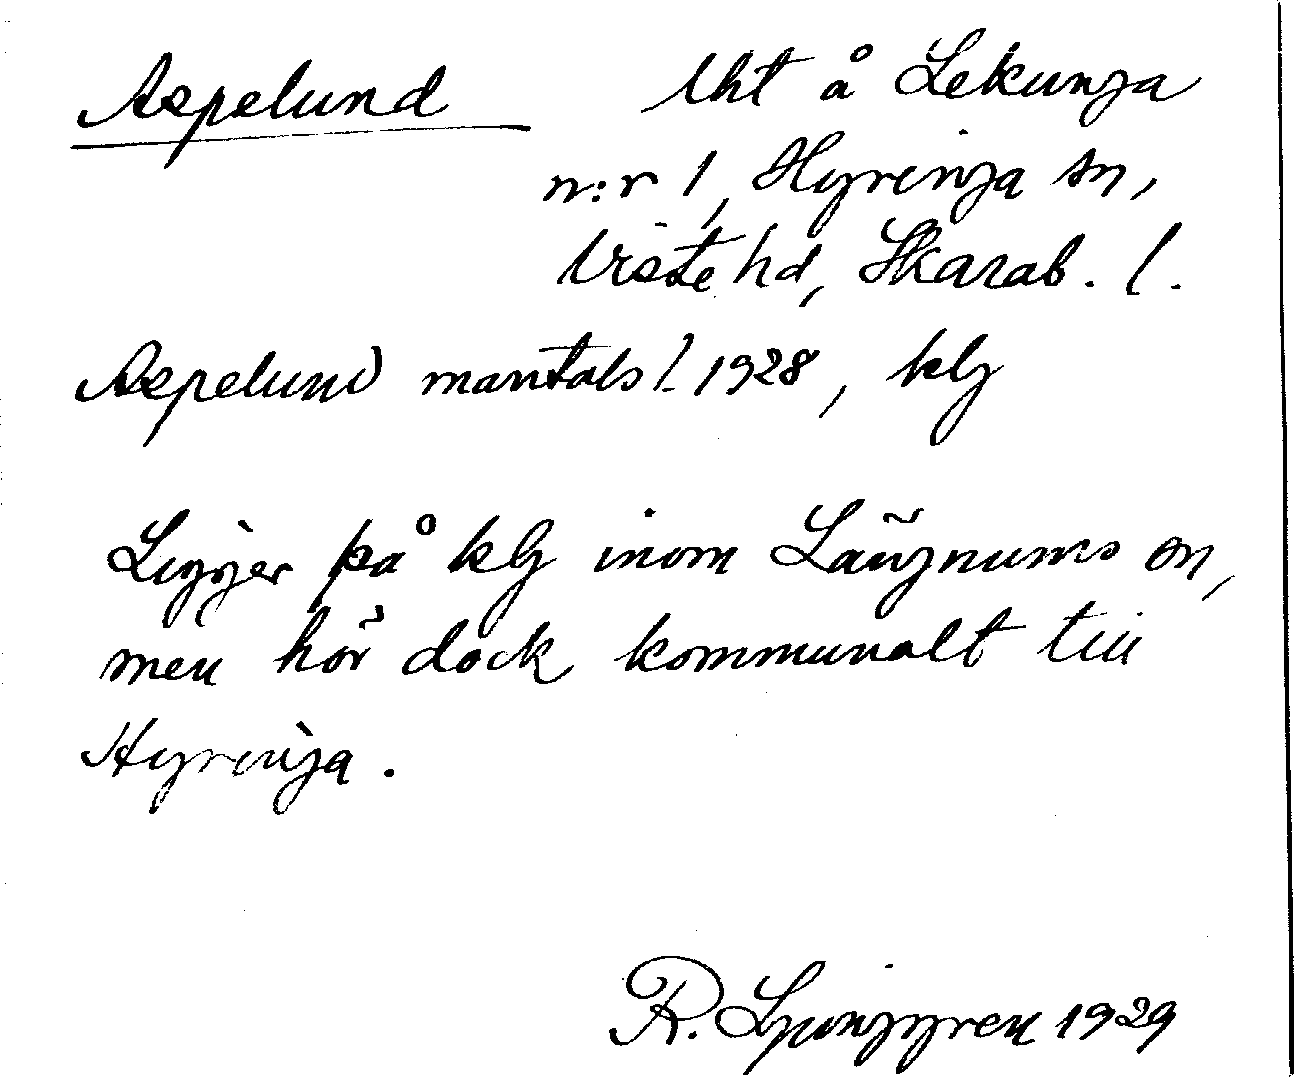 Aspelund
lht å Lekunga
n:r 1, Hyringa sn,
Viste hd, Skarab. l.
Aspelund mantals l. 1928, klg
Ligger på klg inom Längnums sn,
men hör dock kommunalt till
Hyringa.
R. Ljunggren 1929